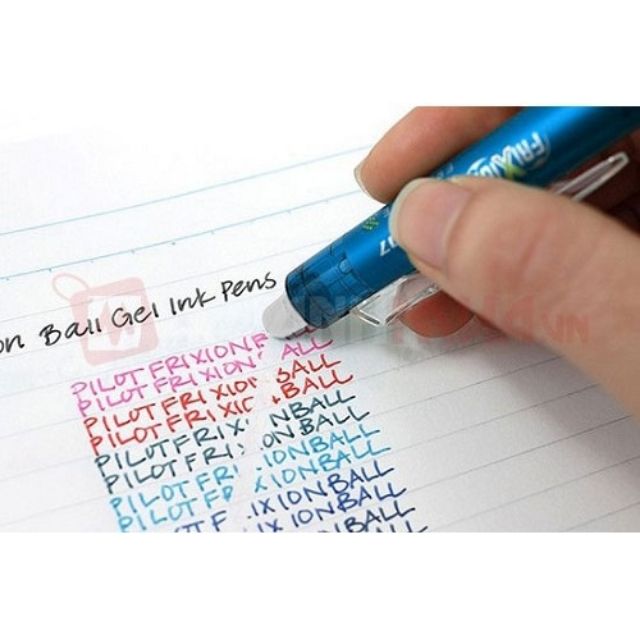 FRIXION
07
on Ball Gel Ink Pens
PILOT FRIXION B
PILOT FRIXION ALL
PILOT FRIXIO BALL
PILOT FRIXIO BALL
PILOT FRIXI NBALL
PILOT FRIX ON BALL
PILOT FR IONBALL
PILOT FR IONBALL
OT F IXIONBALL
IXIONBALL